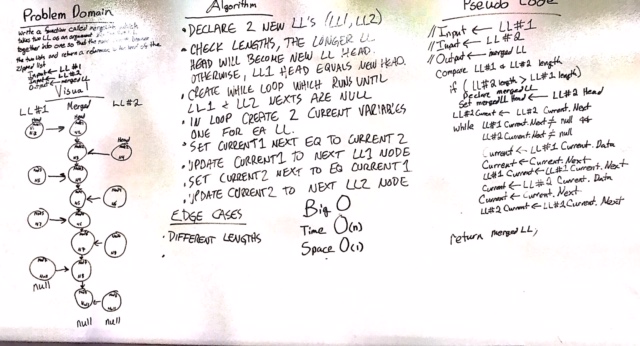 Problem Domain
Write a function called mergeLists which
takes two LL as an argument.
together into one so that the
the two lists and return a reference to the head of the
zipped list
Input ← LL #1
Input ← LL #2
Output ← merged LL
Visual
LL#1 Merged LL#2
Head
null
null null
Algorithm
• DECLARE 2 NEW LL'S (LL1, LL2)
• CHECK LENGTHS, THE LONGER LL
HEAD WILL BECOME NEW LL HEAD.
OTHERWISE, LL1 HEAD EQUALS NEW HEAD.
• CREATE WHILE LOOP WHICH RUNS UNTIL
LL1 + LL2 NEXTS ARE NULL
• IN LOOP CREATE 2 CURRENT VARIABLES
ONE FOR EA LL.
• SET CURRENT1 NEXT EQ TO CURRENT2
• UPDATE CURRENT1 TO NEXT LL1 NODE
• SET CURRENT2 NEXT TO EQ CURRENT1
• UPDATE CURRENT2 TO NEXT LL2 NODE
EDGE CASES
• DIFFERENT LENGTHS
•
Big O
Time O(n)
Space O(1)
Pseudo Code
// Input ← LL#1
// Input ← LL#2
// Output ← merged LL
Compare LL#1 & LL#2 length
if (LL#2 length > LL#1 length)
Declare merged LL
Set merged LL Head ← LL#2 Head
LL#2 Current ← LL#2 Current.Next
while LL#1 Current.Next ≠ null &&
LL#2 Current.Next ≠ null
Current ← LL#1 Current.Data
Current ← Current.Next
LL#1 Current ← LL#1 Current.Next
Current ← LL#2 Current.Data
Current ← Current.Next
LL#2 Current ← LL#2 Current.Next
return merged LL;